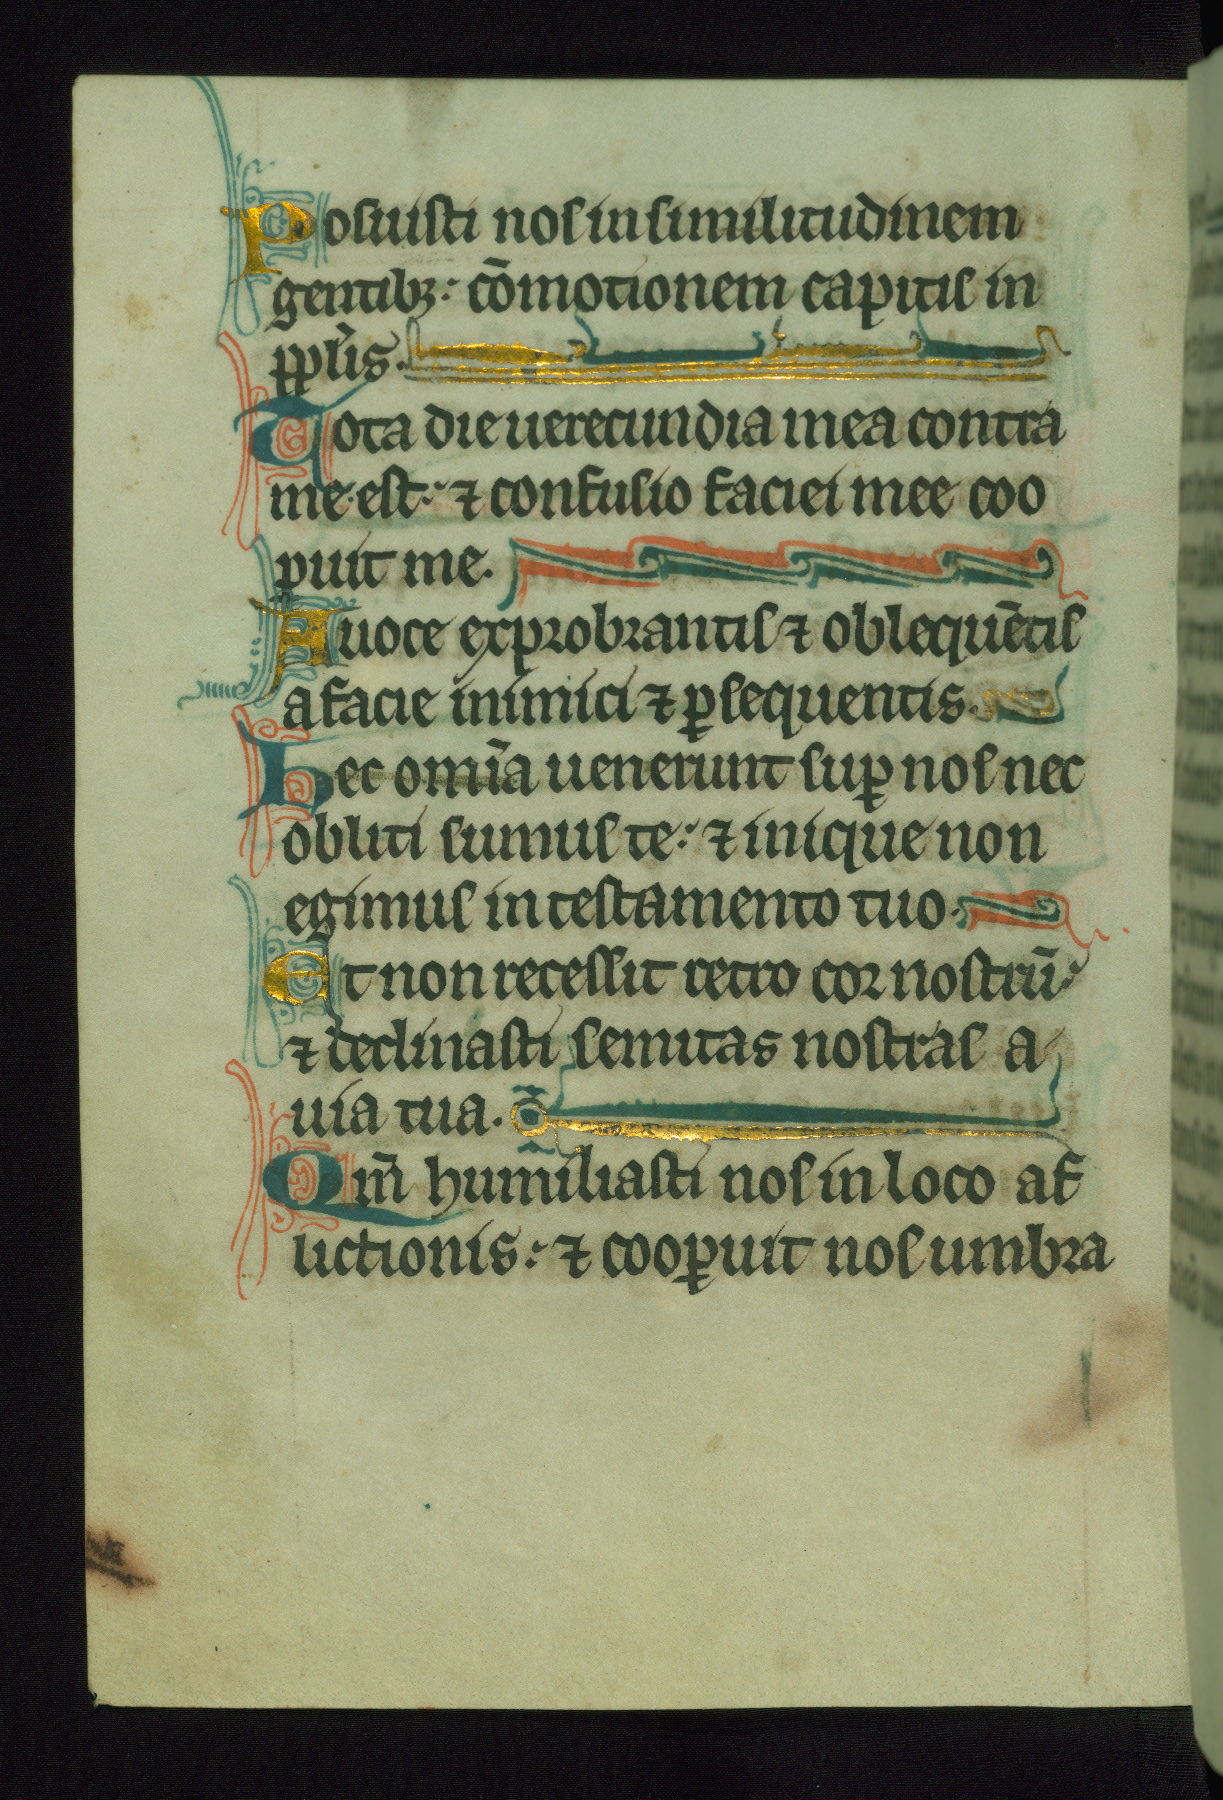 Posuisti nos in similitudinem
gentibꝫ: cōmotionem capitis in
ppl̃is.
Tota die uerecundia mea contra
me est: ⁊ confusio faciei mee coo
puit me.
A uoce exprobrantis ⁊ obloquẽtis
a facie inimici ⁊ ꝑsequentis.
Hec om̃ia uenerunt suꝑ nos nec
obliti sumus te: ⁊ inique non
egimus in testamento tuo.
Et non recessit retro cor nostrũ:
⁊ declinasti semitas nostras a
uia tua.
Qm̃ humiliasti nos in loco af
lictionis: ⁊ cooꝑuit nos umbra